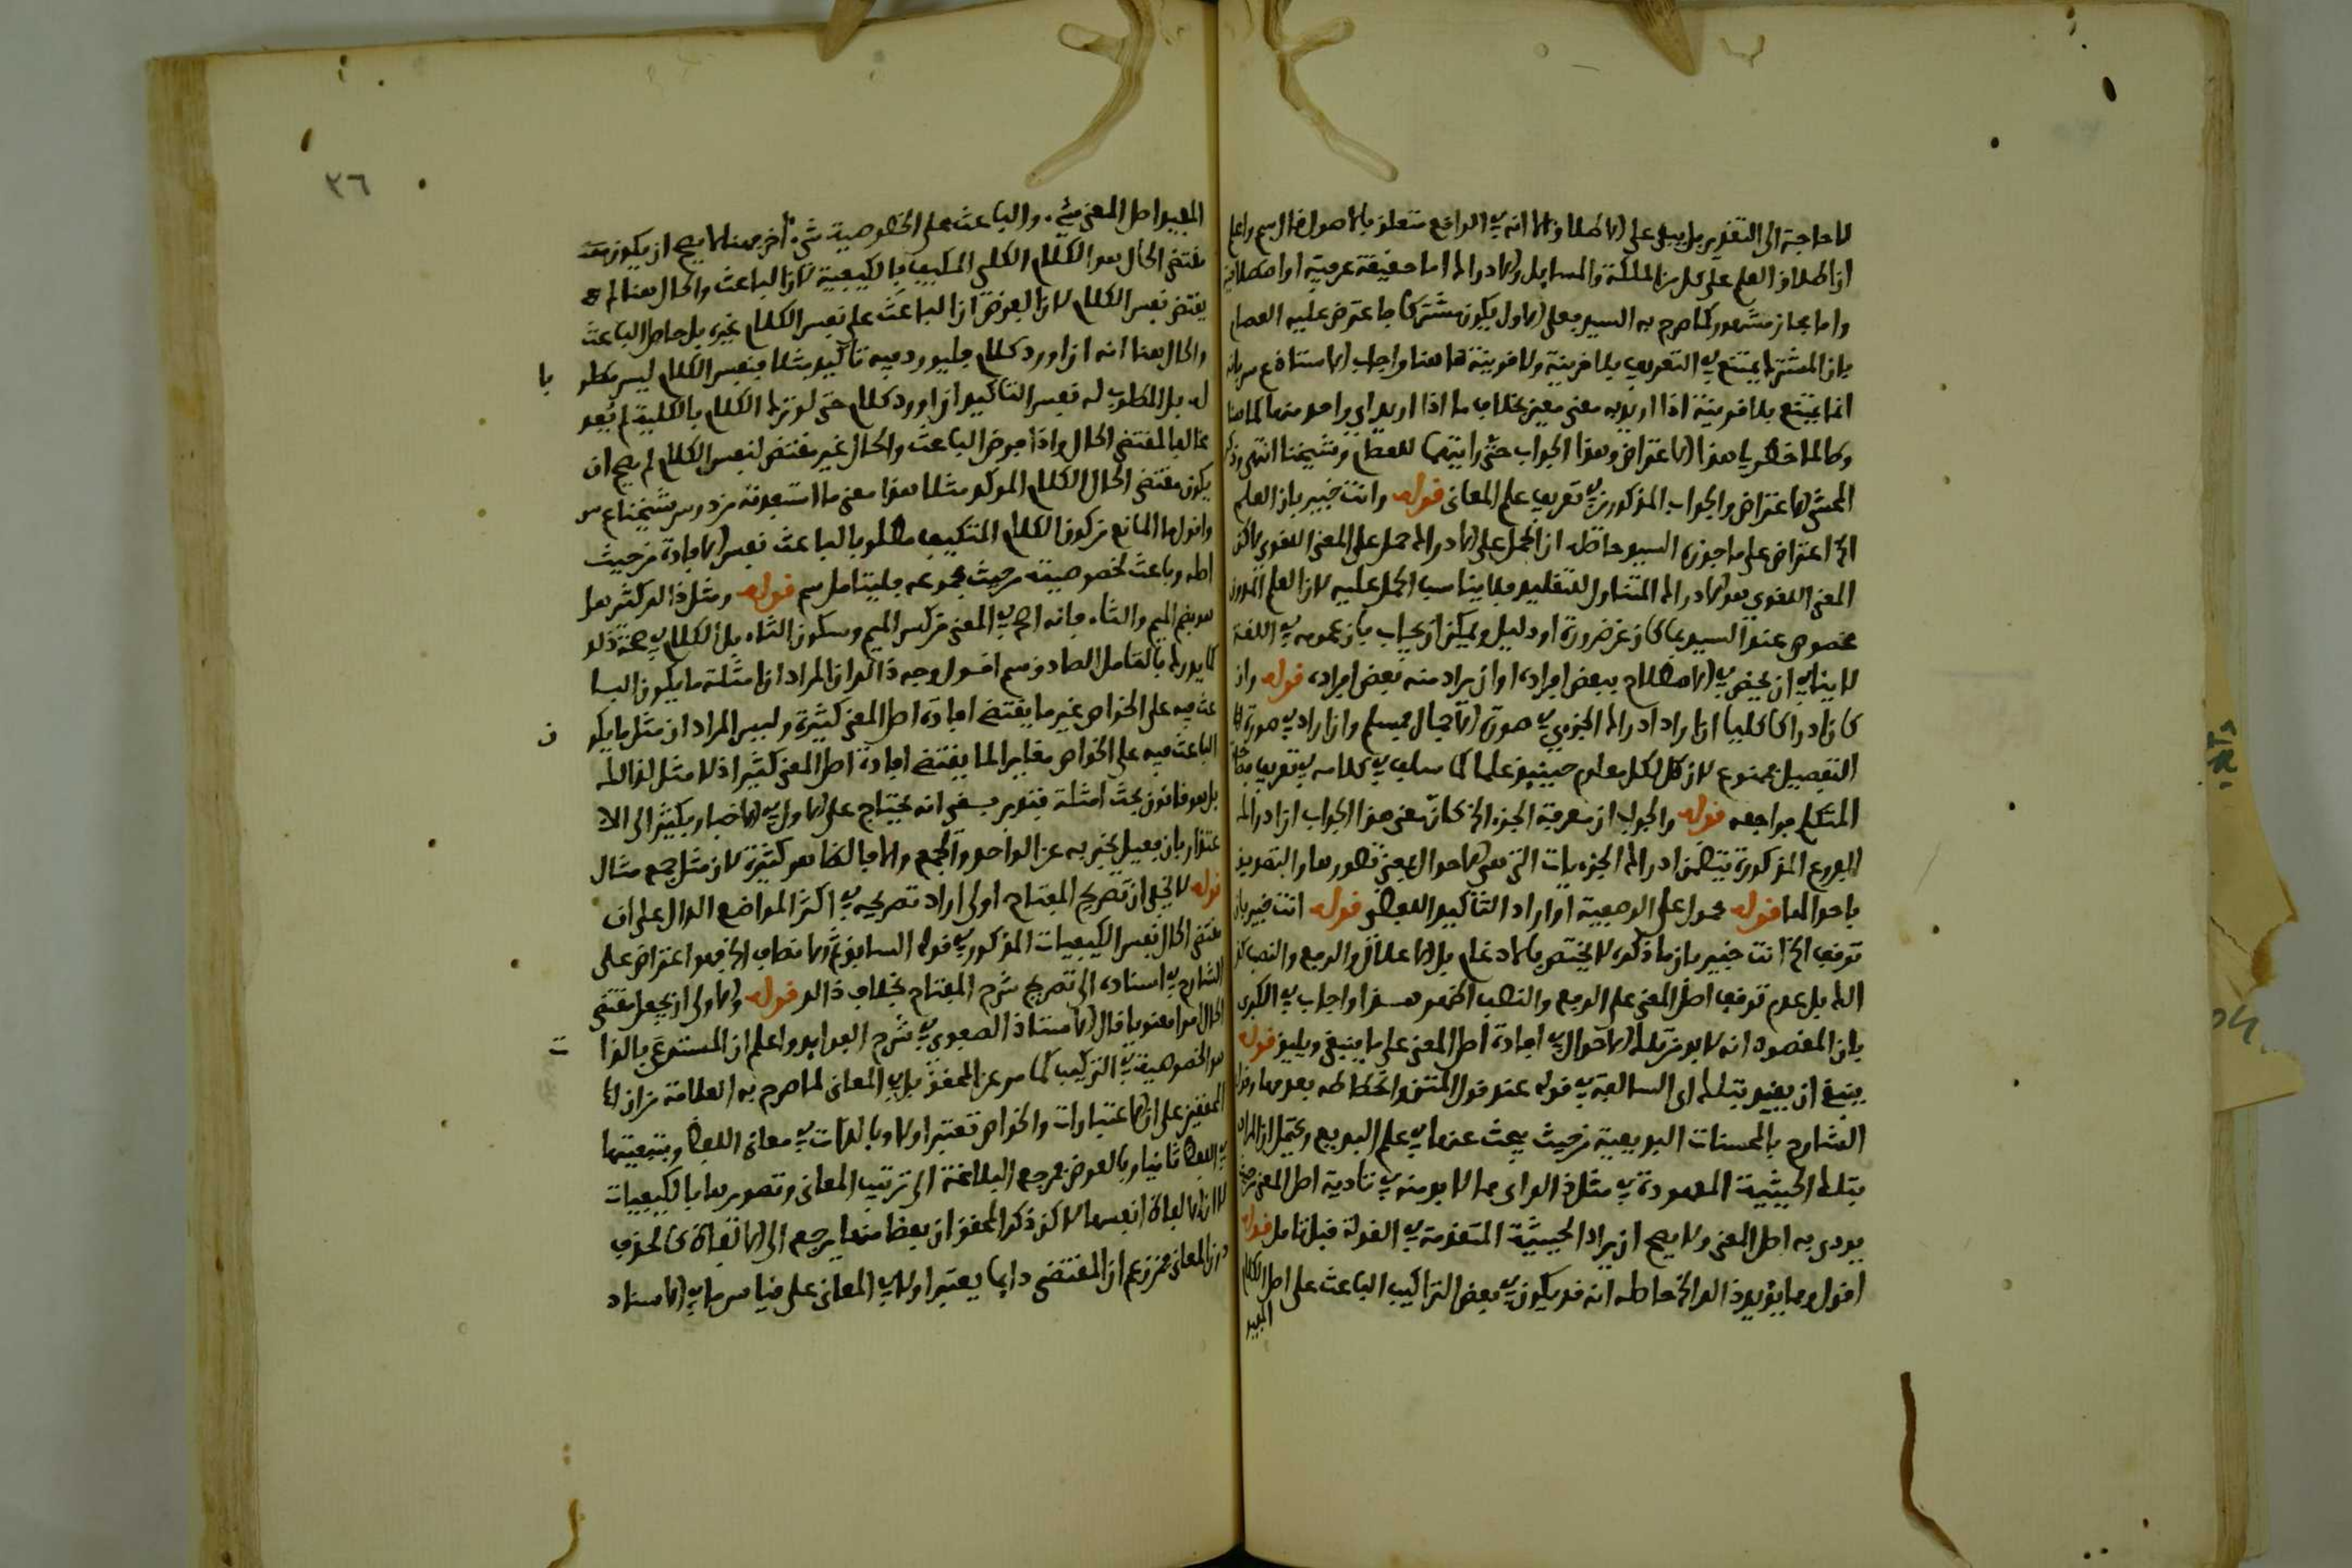 لا حاجة الى التقدير بل يبقى على الاطلاق لانه في الواقع متعلق بالاصول قال سم واعلم
ان اطلاق العلم على كل من الملكة والمسايل والادراك اما حقيقة عرفية او اصطلاحية
واما مجاز مشهور كما صرح به السيد فعلى الاول يكون مشتركا فاعترض عليه العصام
بان المشترك يمتنع في التعريف بلا قرينة ولا قرينة هاهنا واجاب الاستاذ بان
انما يمتنع بلا قرينة اذا اريد به معنى معين بخلاف ما اذا اريد اي واحد منها كما هنا
وطالما خطر لي هذا الاعتراض وهذا الجواب حتى رايتهما للعصام وشيخنا انتهى وذكر
المحشي الاعتراض والجواب المذكورين في تعريف علم المعاني قوله وانت خبير بان العلم
الخ اعتراض على ما جوزه السيد حاصله ان الحمل على الادراك حمل على المعنى اللغوي لاكن
المعنى اللغوي هو الادراك المتناول للتقليد فلا يناسب الحمل عليه لان العلم المدون
مخصوص عند السيد بما كان عن ضرورة او دليل ويمكن ان يجاب بان عمومه في اللغة
لا ينافي ان يخص في الاصطلاح ببعض افراده او ان يراد منه بعض افراده قوله وان
كان ادراكا كليا ان اراد ادراك الجزءي في صورة الاجمال فمسلم وان اراد في صورة
التفصيل فممنوع لان كل لكل معلوم حينئذ علما كما سلف في كلامه في تعريف
المتكلم فراجعه قوله والجواب ان معرفة الجزء الخ كان معنى هذا الجواب ان ادراك
الفروع المذكورة يتضمن ادراك الجزءيات التي هي الاحوال بمعنى تصورها والتصديق
باحوالها قوله محمول على الوضعية او اراد التاكيد اللفظي قوله انت خبير بان
توقف الخ انت خبير بان ما ذكره لا يختص بالادغام بل الاعلال والرفع والنصب كذ
الك بل عدم توقف اصل المعنى على الرفع والنصب اظهر هذا واجاب في الكبرى
بان المقصود انه لا بد من تلك الاحوال في افادة اصل المعنى على ما ينبغي ويليق قوله
ينبغي ان يقيد بتلك اى السابقة في قوله عند قول المتن وانحطاطه بعدمها وقول
الشارح بالمحسنات البديعية من حيث يبحث عنها في علم البديع ويحتمل ان المراد
بتلك الحيثية المعهودة في مثل ذالك اى مما لا بد منه في تادية اصل المعنى من حيث
يودى به اصل المعنى ولا يصح ان يراد الحيثية المتقدمة في القولة قبل تامل قوله
اقول ومما يؤيد ذالك الخ حاصله انه قد يكون في بعض التراكيب الباعث على اصل الكلام
المفيد
٣٦
المفيد اصل المعنى شيء والباعث على الخصوصية شيء اخر فهنا لا يصح ان يكون
مقتضى الحال هو الكلام الكلي المكيف بالكيفية لان الباعث والحال هنا لم
يقتض نفس الكلام لان الفرض ان الباعث على نفس الكلام غيره بل حاصل الباعث
والحال هنا انه ان اورد كلام فليورد فيه تاكيد مثلا فنفس الكلام ليس مطلو با
له بل المطلوب له نفس التاكيد ان اورد كلام حتى لو ترك الكلام بالكلية لم يعد
مخالفا لمقتضى الحال واذا فرض الباعث والحال غير مقتض لنفس الكلام لم يصح ان
يكون مقتضى الحال الكلام الموكد مثلا هذا معنى ما استفدته من دروس شيخنا
واقول ما المانع من كون الكلام المتكيف مطلوبا لباعث نفس الافادة من حيث
اصله وباعث لخصوصيته من حيث مجموعه فليتامل سم قوله ومثل ذالك كثير هل
هو بضم الميم والثاء فانه اصح في المعنى من كسر الميم وسكون الثاء بل الكلام في صحة ذلك
كما يدرك بالتامل الصادق سم اقول وجه ذالك ان المراد ان امثلة ما يكون البا
عث فيه على الخواص غير ما يقتضي افادة اصل المعنى كثيرة وليس المراد ان مثل ما يكو ن
الباعث فيه على الخواص مغايرا لما يقتضي افادة اصل المعنى كثيرا اذ لا مثل لذالك
بل هو قانون تحث امثلة فتدبر بقي انه يحتاج على الاول في الاخبار بكثير الى الا
عتذار بان فعيل يخبر به عن الواحد والجمع والا فالظاهر كثيرة لان مثل جمع مثال
قوله لا يخفى ان تصريح المفتاح اولى اراد تصريحه في اكثر المواضع الدال على ان
مقتضى الحال نفس الكيفيات المذكور في قوله السابق ثم الانصاف الخ فهو اعتراض على
الشارح في اسناده الى تصريح شرح المفتاح بخلاف ذالك قوله والاولى ان يجعل مقتضى
الحال امرا معنويا قال الاستاذ الصفوي في شرح الفوايد واعلم ان المستودع بالذا ت
هو الخصوصية في التركيب كما مر عن المحقق بل في المعاني لما صرح به العلامة من ان را
المحققين على ان الاعتبارات والخواص تعتبر اولا وبالذات في معاني اللفظ وبتبعيتها
في اللفظ ثانيا وبالعرض فمرجع البلاغة الى ترتيب المعاني وتصويرها بالكيفيات
لا الى الالفاظ انفسها لاكن ذكر المحقق ان بعضا منها يرجع الى الالفاظ كالحذف
دون المعاني فمن زعم ان المقتضى دايما يعتبر اولا في المعاني على قياس ما في الاسناد